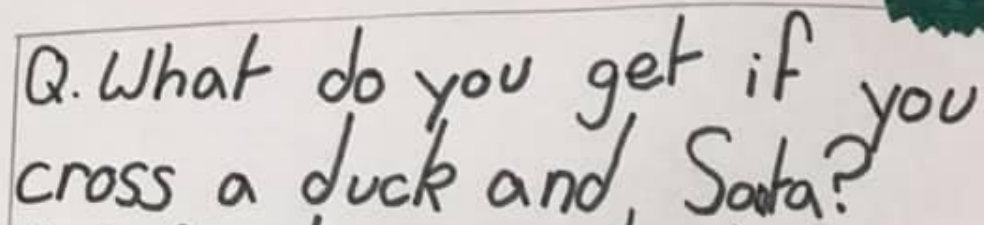 Q. What do you get if you
cross a duck and Santa?